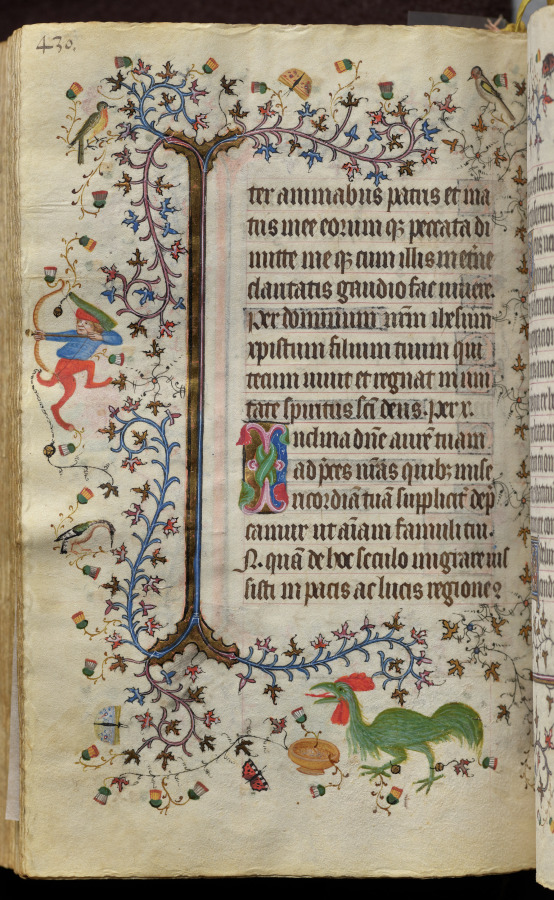 430.
ter animabus patris et ma
tris mee eorum qz peccata di
mitte me qz cum illis in eterne
claritatis gaudio fac vivere.
Per dominum nrm ihesum
xpistum filium tuum qui
tecum vivit et regnat in uni
tate spiritus sci deus. per x.
Inclina dne aurē tuam
ad pces nras quibz mise
ricordiā tuā supplicit dep
camur ut aīam famuli tui.
N. quā de hoc seculo migrare ius
sisti in pacis ac lucis regione